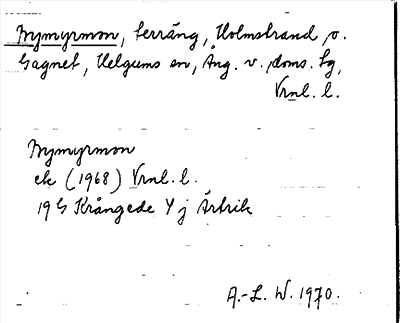 Nymyrmon, terräng, Holmstrand o.
Gagnet, Helgums sn, Ång. v. doms. lg,
Vrnl. l.
Nymyrmon
ek (1968) Vrnl. l.
19 G Krångede 4 j Ärtrik
A.-L. W. 1970.